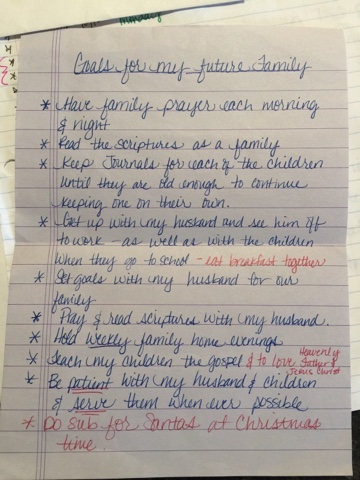 Goals for my future Family
* Have family prayer each morning
& night
* Read the Scriptures as a family
* Keep Journals for each of the children
until they are old enough to continue
keeping one on their own.
* Get up with my husband and see him off
to work - as well as with the children
when they go to school - eat breakfast together
* Set goals with my husband for our
family
* Pray & read scriptures with my husband.
* Hold weekly family home evenings
* Teach my children the gospel & to love Heavenly Father & Jesus Christ
* Be patient with my husband & children
& serve them when ever possible
* Do sub for Santas at Christmas
time.